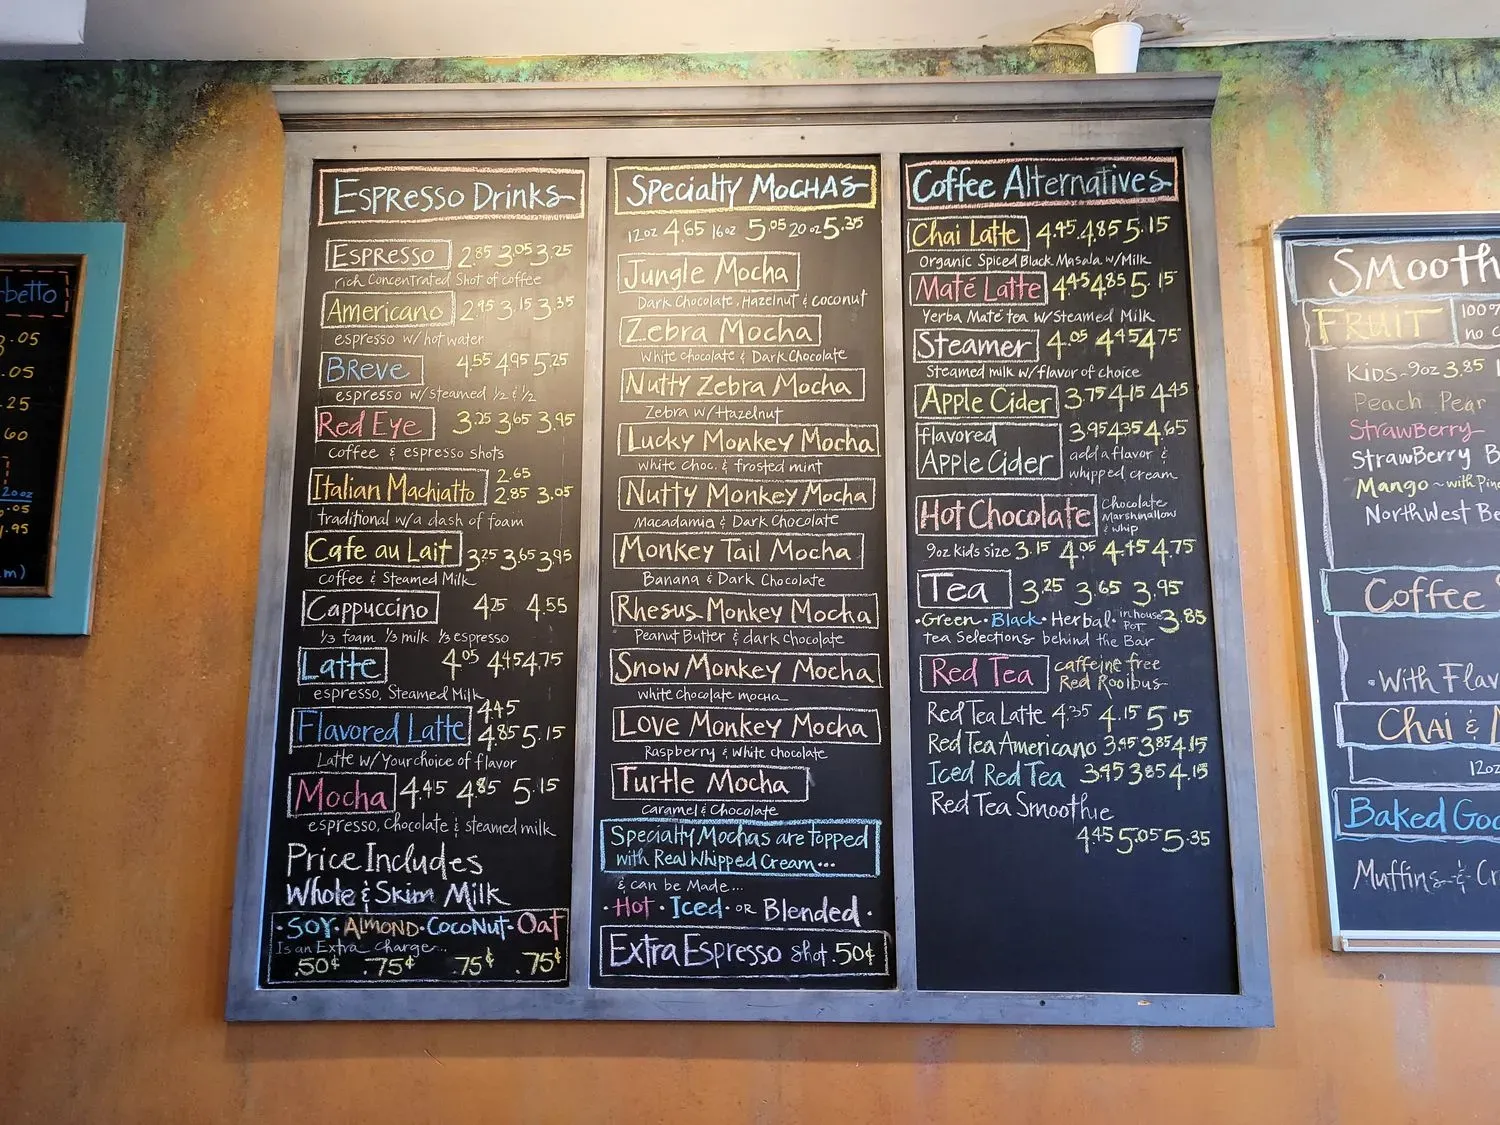 rbetto
.05
.05
.25
.60
20oz
.95
Espresso Drinks
Espresso 2.85 3.05 3.25
rich Concentrated Shot of coffee
Americano 2.95 3.15 3.35
espresso w/hot water
Breve 4.55 4.95 5.25
espresso w/steamed ½ & ½
Red Eye 3.25 3.65 3.95
coffee & espresso shots
Italian Machiatto 2.65
2.85 3.05
traditional w/a dash of foam
Cafe au Lait 3.25 3.65 3.95
coffee & Steamed Milk
Cappuccino 4.25 4.55
⅓ foam ⅓ milk ⅓ espresso
Latte 4.05 4.45 4.75
espresso, Steamed Milk
Flavored Latte 4.45
4.85 5.15
Latte w/ Your choice of flavor
Mocha 4.45 4.85 5.15
espresso, Chocolate & steamed milk
Price Includes
Whole & Skim Milk
·Soy·Almond·Coconut·Oat
Is an Extra Charge...
.50¢ .75¢ .75¢ .75¢
Specialty Mochas
12oz 4.65 16oz 5.05 20oz 5.35
Jungle Mocha
Dark Chocolate, Hazelnut & coconut
Zebra Mocha
White chocolate & Dark Chocolate
Nutty Zebra Mocha
Zebra w/Hazelnut
Lucky Monkey Mocha
White choc. & frosted mint
Nutty Monkey Mocha
Macadamia & Dark Chocolate
Monkey Tail Mocha
Banana & Dark Chocolate
Rhesus Monkey Mocha
Peanut Butter & dark chocolate
Snow Monkey Mocha
White chocolate mocha
Love Monkey Mocha
Raspberry & White chocolate
Turtle Mocha
Caramel & Chocolate
Specialty Mochas are topped
with Real Whipped Cream...
& can be Made...
·Hot·Iced·or Blended·
Extra Espresso shot .50¢
Coffee Alternatives
Chai Latte 4.45 4.85 5.15
Organic Spiced Black Masala w/Milk
Maté Latte 4.45 4.85 5.15
Yerba Maté tea w/Steamed Milk
Steamer 4.05 4.45 4.75
Steamed milk w/flavor of choice
Apple Cider 3.75 4.15 4.45
flavored 3.95 4.35 4.65
Apple Cider add a flavor &
whipped cream
Hot Chocolate Chocolate
Marshmallow
& whip
9oz kids size 3.15 4.05 4.45 4.75
Tea 3.25 3.65 3.95
·Green·Black·Herbal·in house Pot 3.85
tea Selections behind the Bar
Red Tea caffeine free
Red Rooibus
Red Tea Latte 4.35 4.15 5.15
Red Tea Americano 3.45 3.85 4.15
Iced Red Tea 3.45 3.85 4.15
Red Tea Smoothie
4.45 5.05 5.35
Smooth
Fruit 100%
no c
Kids~9oz 3.85
Peach Pear
Strawberry
Strawberry B
Mango~with Pine
Northwest Be
Coffee
·With Flav
Chai &
12oz
Baked Goo
Muffins & Cr